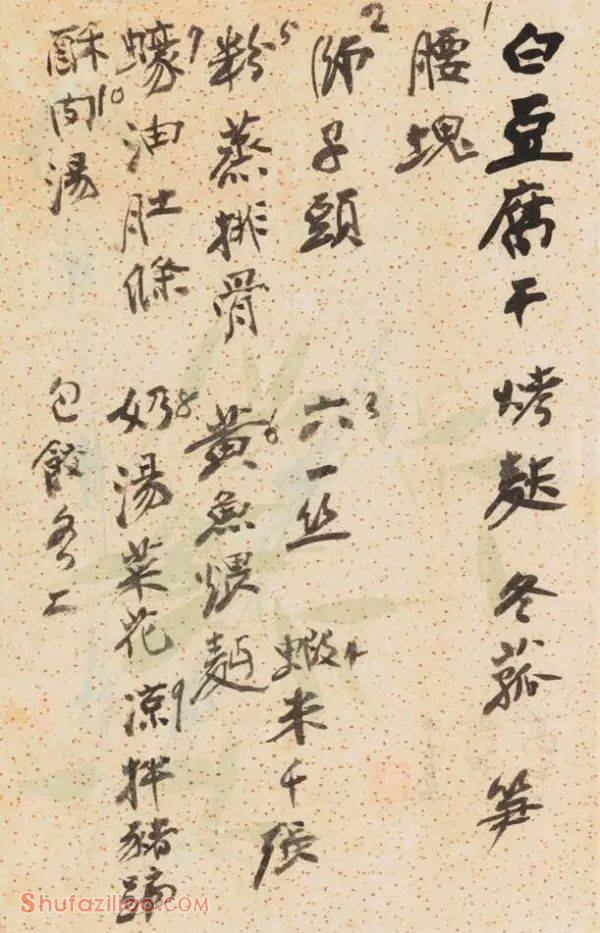 白豆腐干 烤麩 冬菰 笋
腰塊 1
師子頭 2 六一丝 3 蝦米千張 4
粉蒸排骨 5 黃魚煨麵 6
蠔油肚條 7 奶湯菜花 8 凉拌豬蹄 9
酥肉湯 10 包餃
Shufaziliao.com